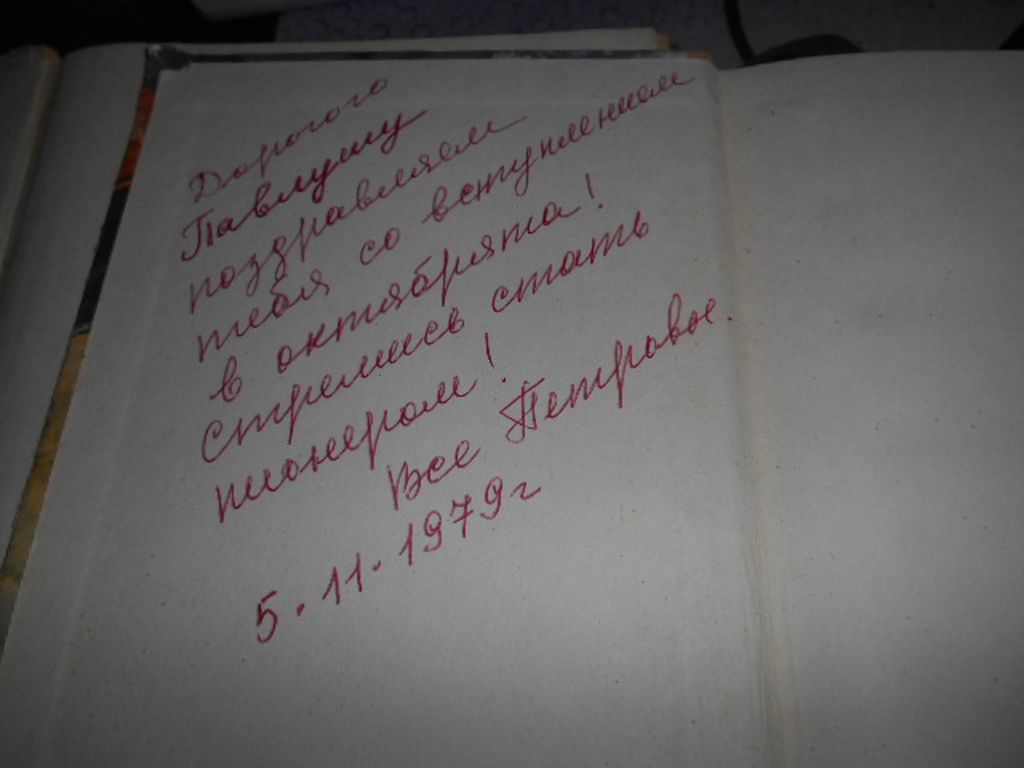 Дорогого
Павлушу
поздравляем
тебя со вступлением
в октябрята!
Стремись стать
пионером!
Все Петровы.
5.11.1979г